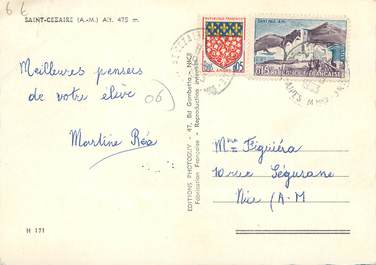 6 6
SAINT-CEZAIRE (A.-M.) Alt. 475 m.
Meilleures pensées
de votre élève
06
Martine Réa
H 171
EDITIONS PHOTOGUY - 47, Bd Gambetta - NICE
Fabrication Française - Reproduction interdite
RÉPUBLIQUE FRANÇAISE
0,05
0,15 RÉPUBLIQUE FRANÇAISE
Mme Figuiéra
10 rue Ségurane
Nice (A-M